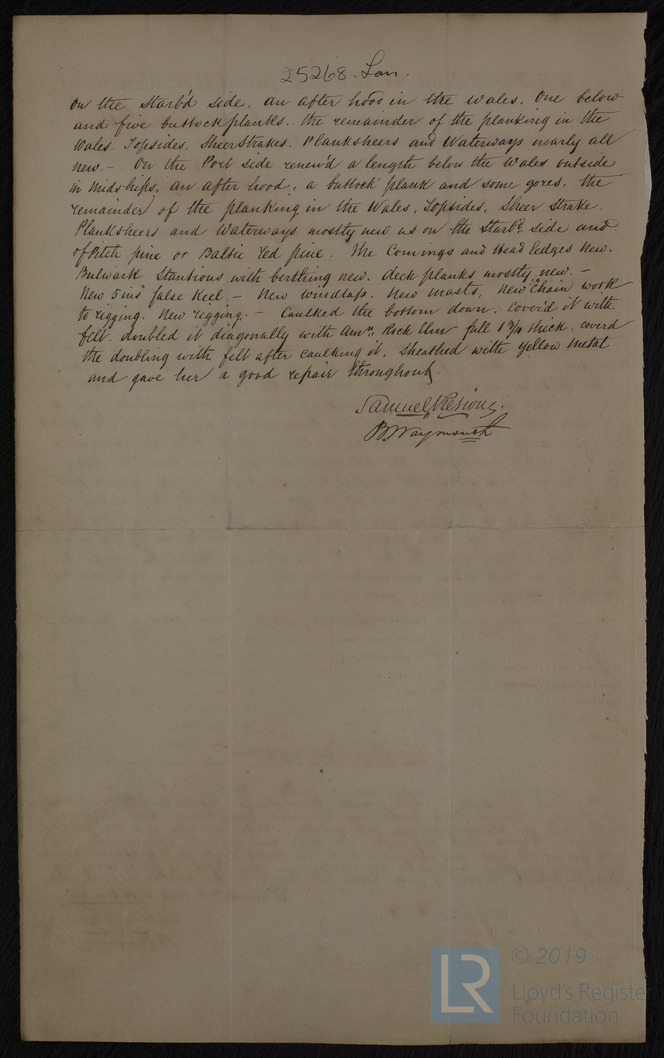 25268. Lon.
on the Starb'd side, an after hood in the Wales. One below
and five buttock planks. the remainder of the planking in the
Wales. Topsides, SheerStrakes, Planksheers and Waterways nearly all
new. - On the Port side renew'd a length below the Wales outside
in Midships, an after hood, a buttock plank and some gores. the
remainder of the planking in the Wales, Topsides, Sheer Strake.
Planksheers and Waterways mostly new as on the Starbd. side and
of Pitch pine or Baltic red pine. The Comings and Head ledges New.
Bulwark Stantions with berthing new. deck planks mostly new. -
New 5 ins false Keel. - New windlass. New masts, New Chain work
to rigging. New rigging. - Caulked the bottom down. Cover'd it with
felt. doubled it diagonally with Amn. Rock Elm full thick. coverd
the doubling with felt after caulking it. Sheathed with yellow metal
and gave her a good repair throughout.
Samuel
B Waymouth
© 2019
LR
Lloyd's Register
Foundation